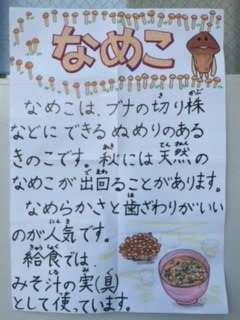 なめこ
なめこは、ブナの切り株
などにできるぬめりのある
きのこです。秋には天然の
なめこが出回ることがあります。
なめらかさと歯ざわりがいい
のが人気です。
給食では、
みそ汁の実(具)
として使っています。